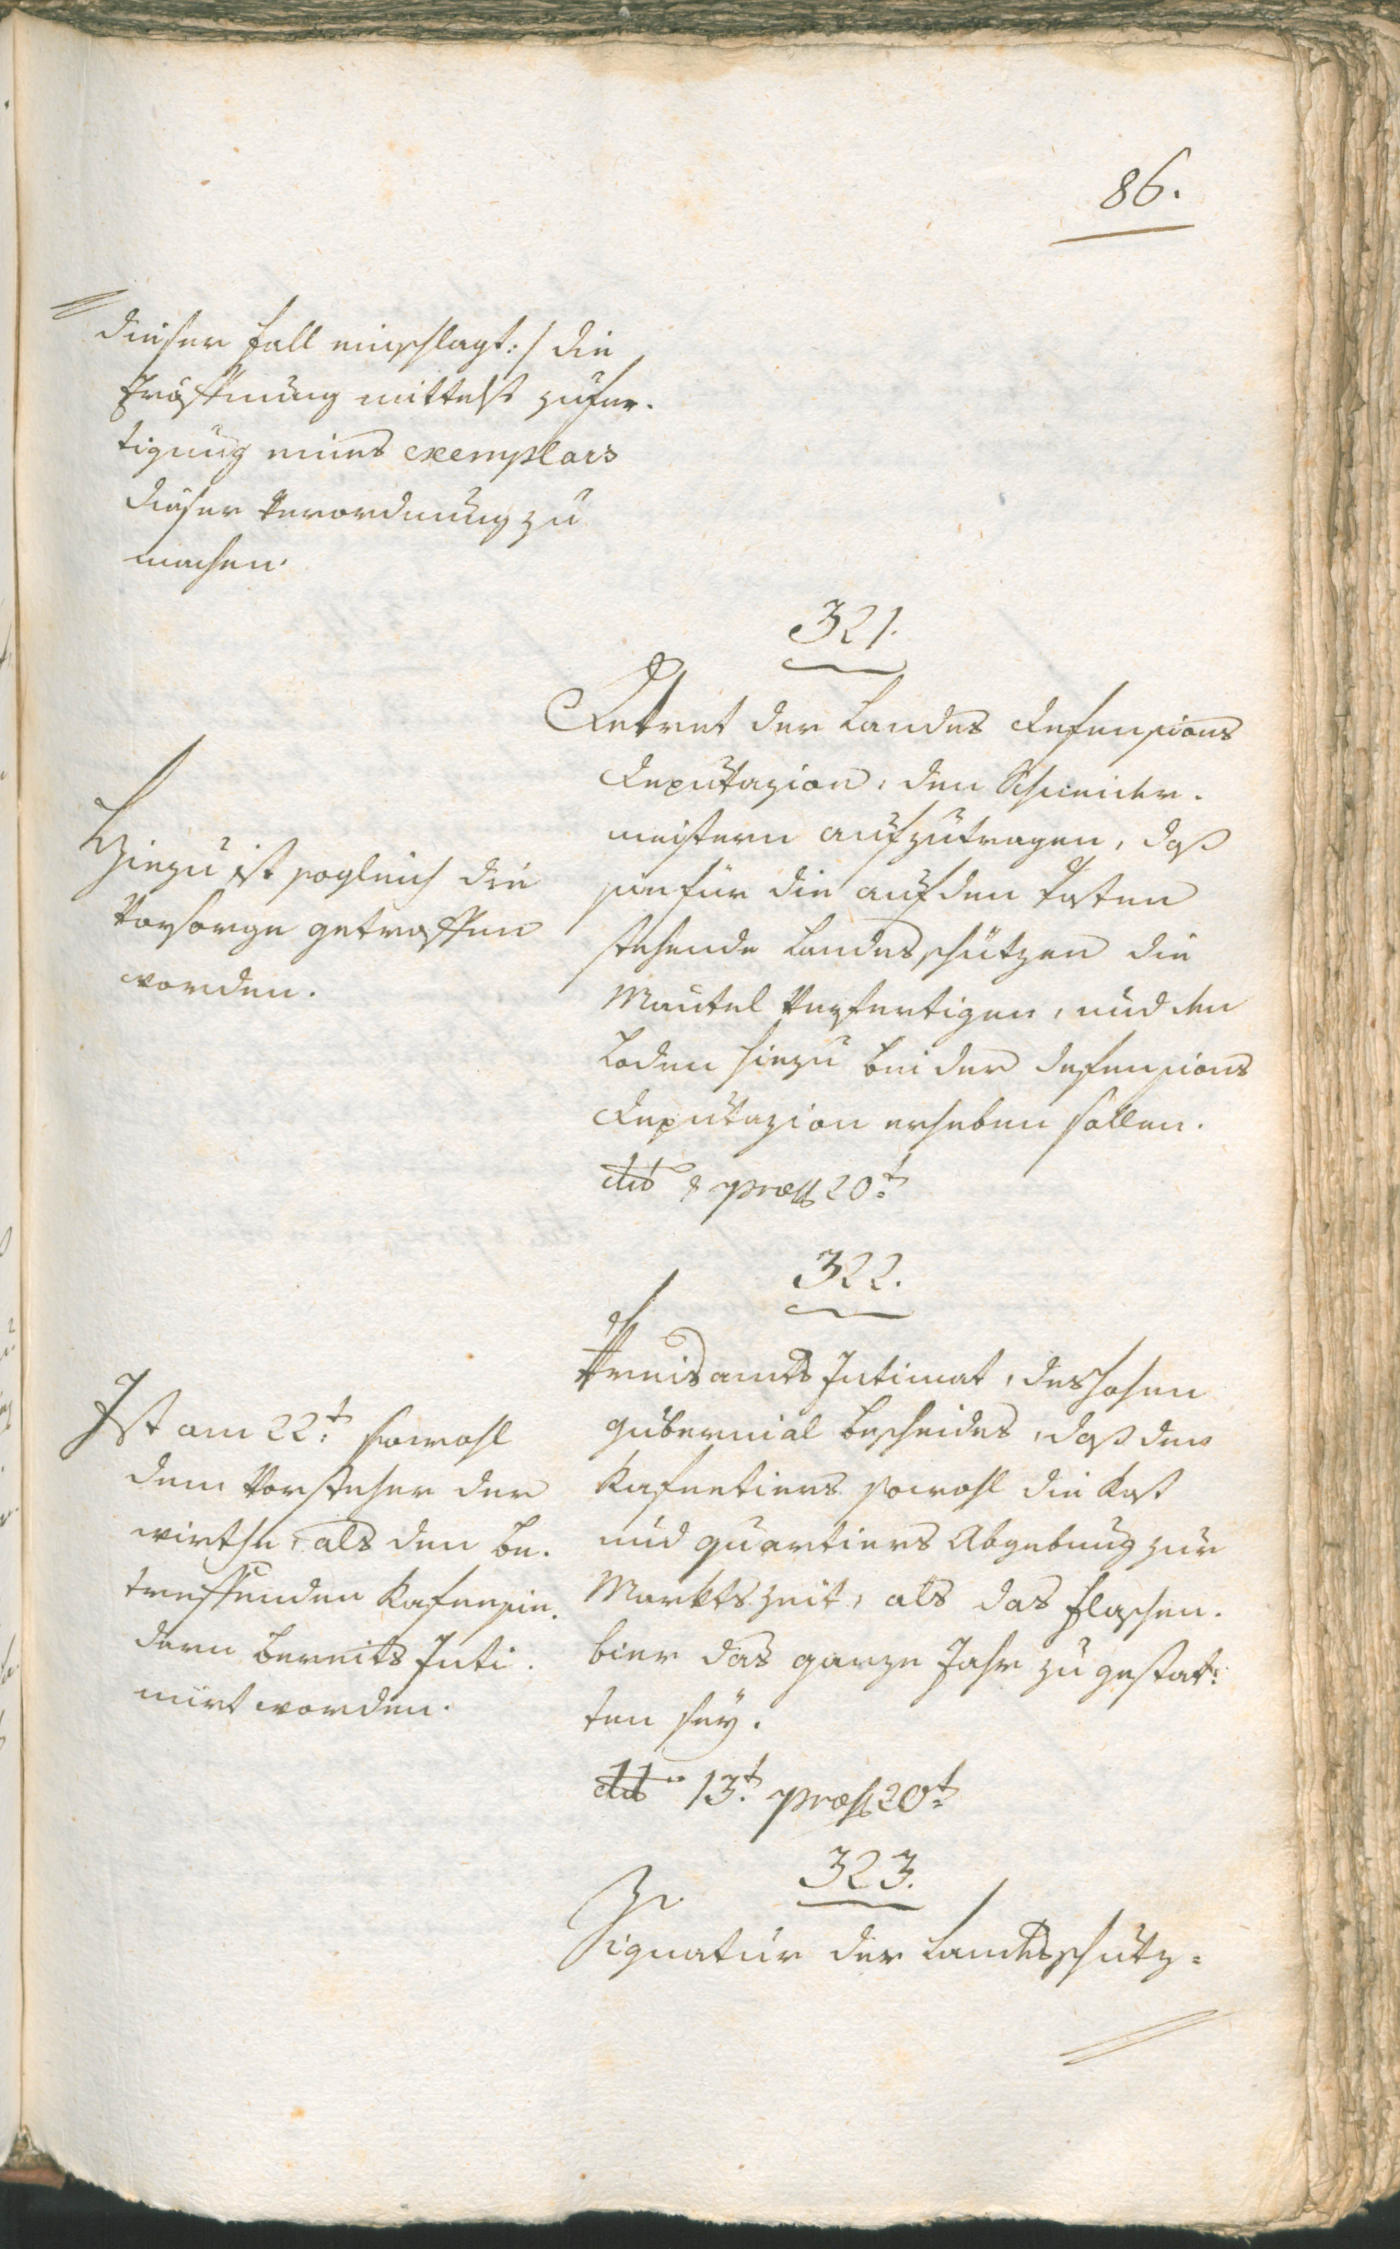 86.
dieser Fall einschlagt :/ die
Eröffnung mittelst zufer-
tigung eines exemplars
dieser Verordnung zu
machen.
321.
Dekret der Landes Defensions
Deputazion, den Schneider-
meistern aufzutragen, daß
sie für die auf den Posten
stehende Landesschützen die
Mäntel verfertigen, und den
Loden hiezu bei der Defensions
Deputazion erheben sollen.
ddo & præs 20t
Hiezu ist sogleich die
Vorsorge getroffen
worden.
322.
Kreisamts Intimat, des hohen
Gubernial Bescheides, daß den
Kafeetiers sowohl die Kost
und quartiers Abgebung zur
Marktszeit, als das Flaschen-
bier das ganze Jahr zu gestat-
ten sey.
ddo 13t præs 20t
Ist am 22t sowohl
dem Vorsteher der
wirthe, als den be-
treffenden Kafeesie-
dern bereits Inti-
mirt worden.
323.
Signatur der Landesschütz=